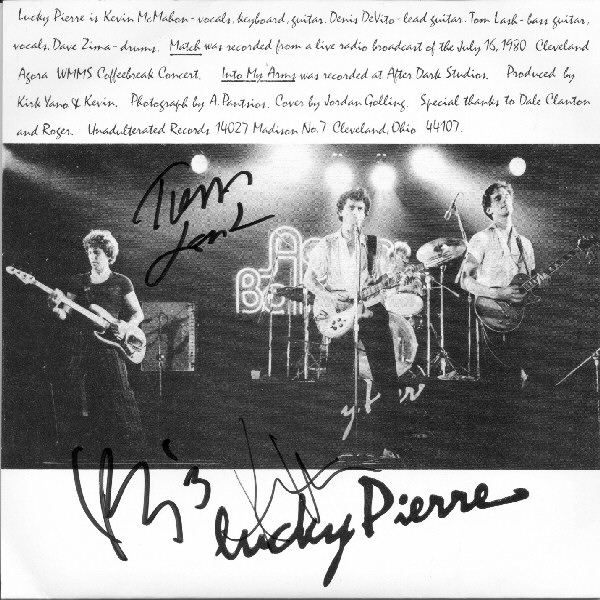 Lucky Pierre is Kevin McMahon - vocals, keyboard, guitar. Denis DeVito - lead guitar. Tom Lash - bass guitar,
vocals. Dave Zima - drums. Match was recorded from a live radio broadcast of the July 16, 1980 Cleveland
Agora WMMS Coffeebreak Concert. Into My Arms was recorded at After Dark Studios. Produced by
Kirk Yano & Kevin. Photograph by A. Pantsios. Cover by Jordan Golling. Special thanks to Dale Clanton
and Roger. Unadulterated Records 14027 Madison No. 7 Cleveland, Ohio 44107.
Tom
Lash
Lucky Pierre